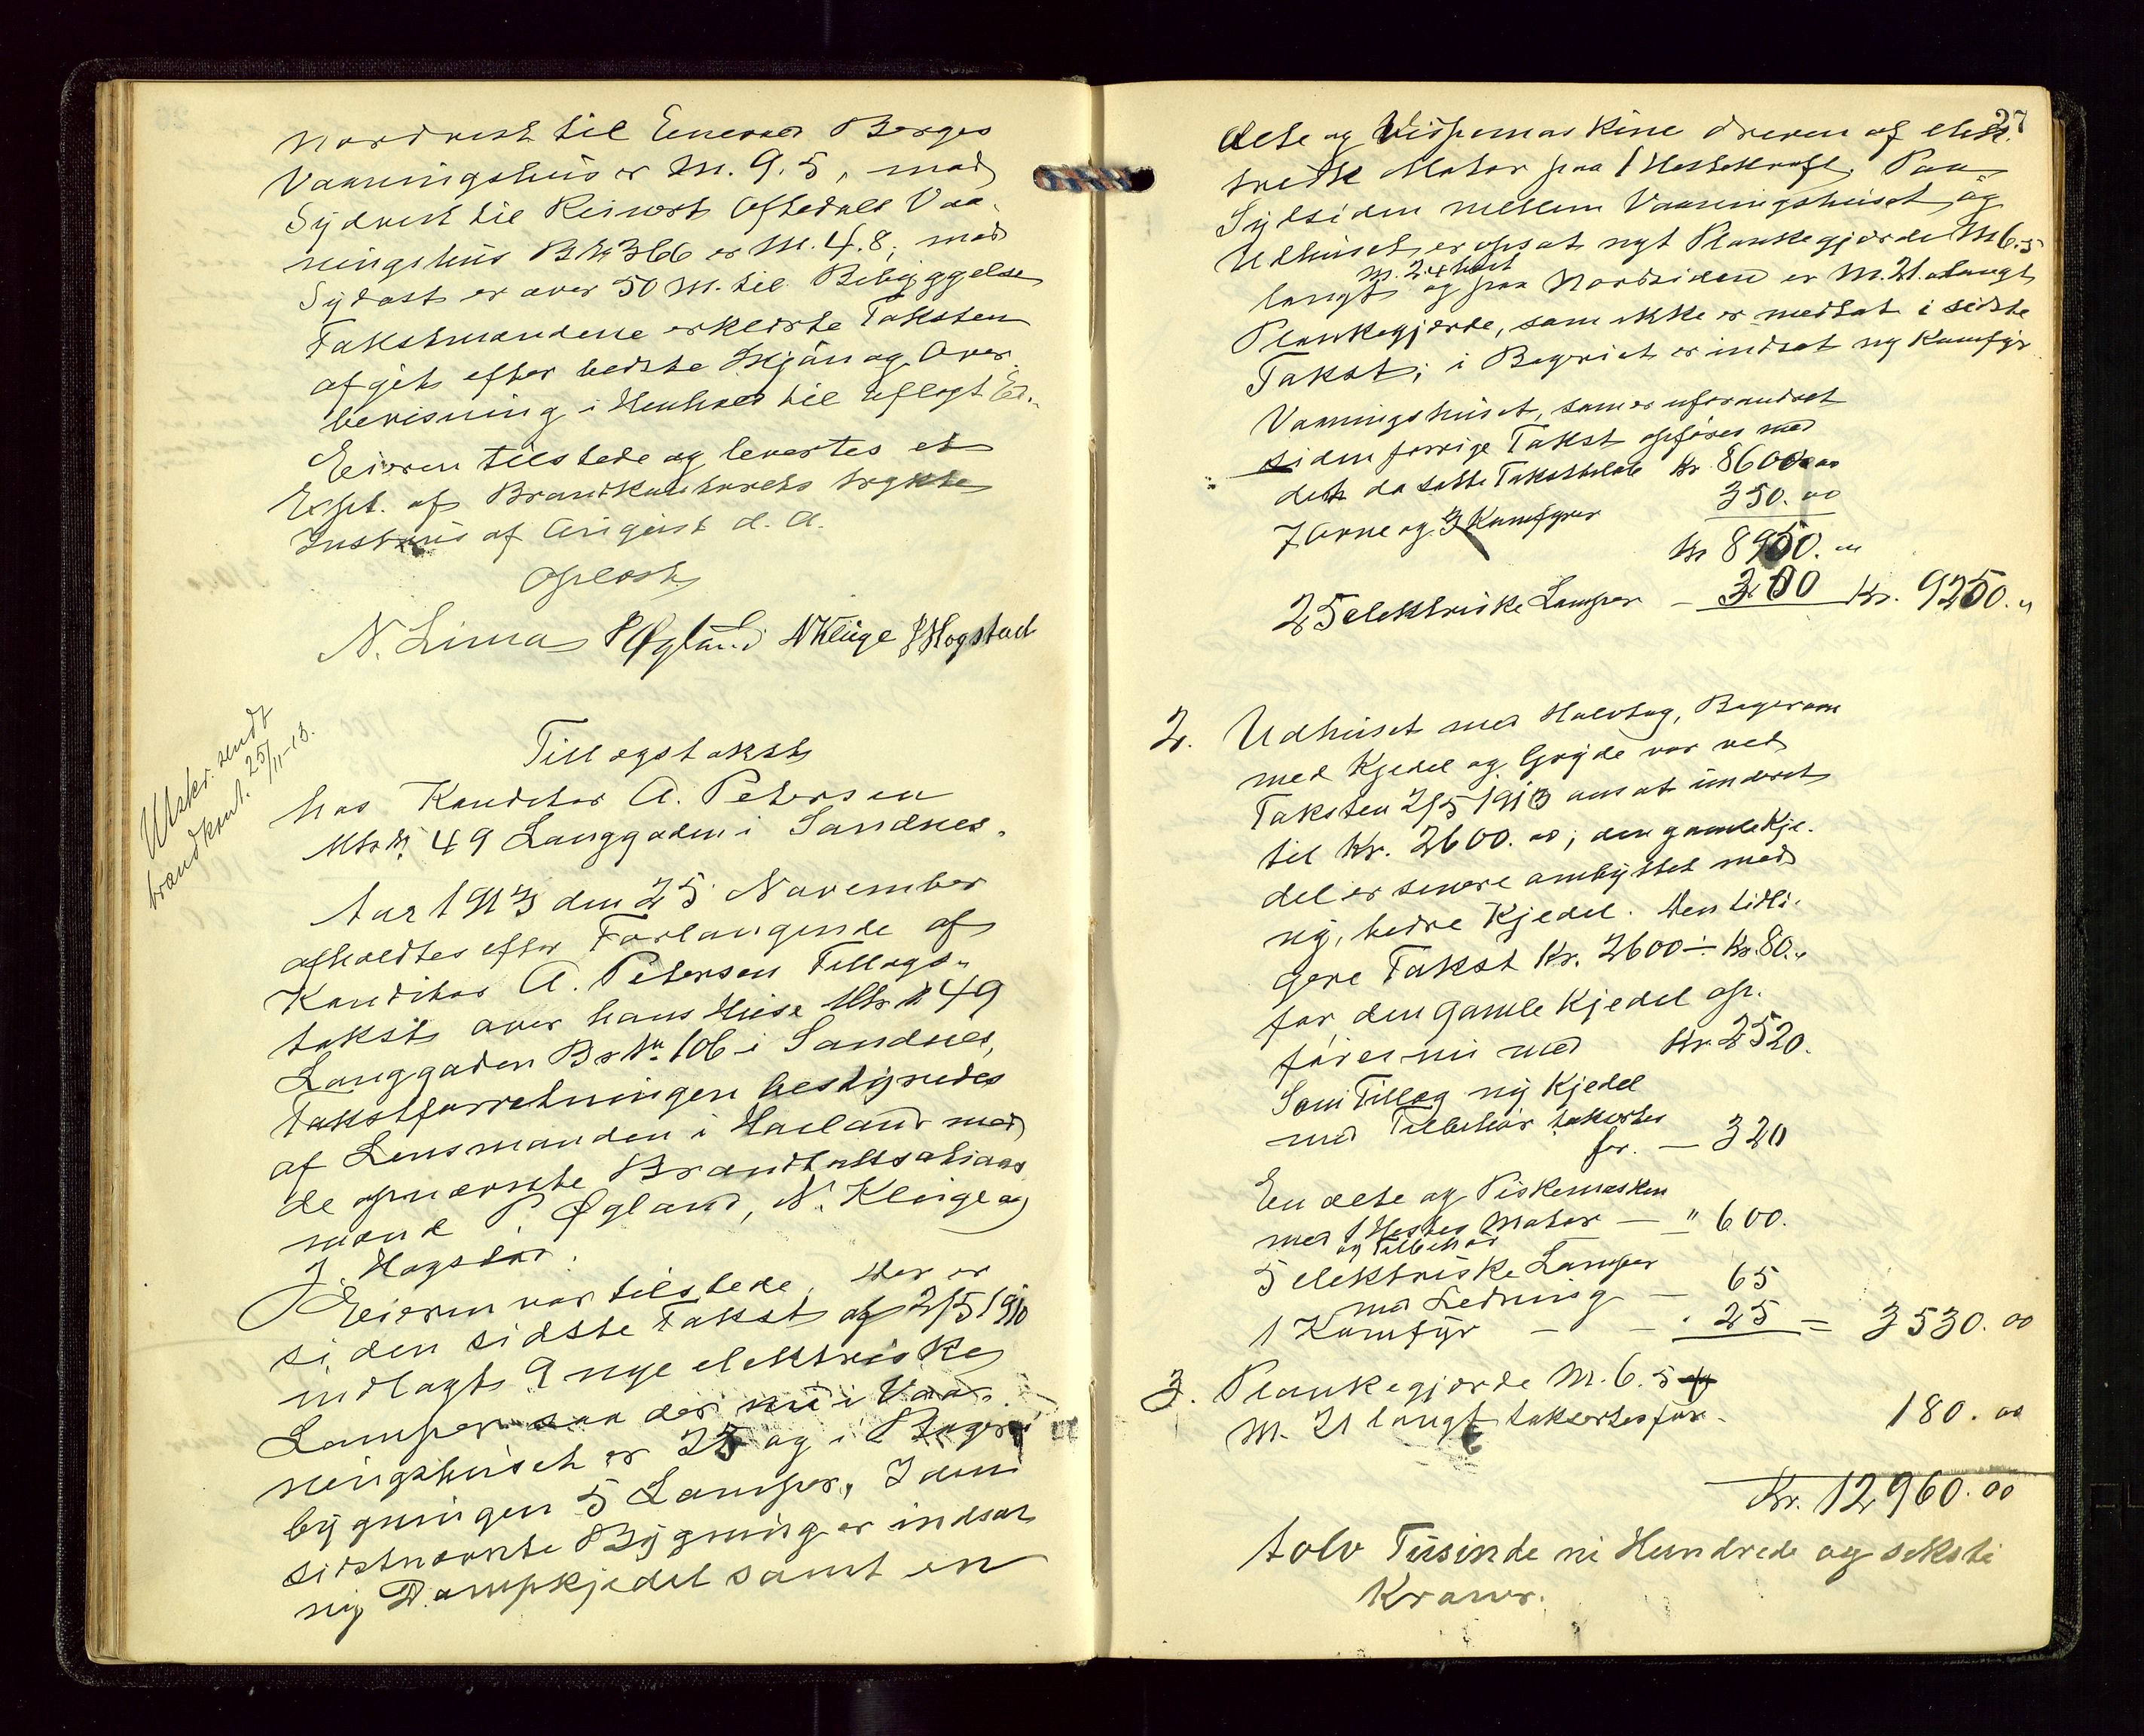 Nordvest til Enevald Berges
Vaaningshus er M. 9.5, mod
Sydvest til Reinert Oftedals Vaa-
ningshus B № 366 er M. 4.8; mod
Sydost er over 50 M. til Bebyggelse
Takstmændene erklærte Taksten
afgit efter bedste Skjøn og Over-
bevisning i Henhold til aflagt Ed.
Eieren tilstede og levertes et
Expl. af Brandkontorets trykte
Instrus af August d. A.
Oplæst
N. Lima P Øgland N Kluge J Hogstad
Utskr. sendt
brandkont. 25/11-13.
Tillægstakst
hos Konditor A. Petersen
Mtr № 49 Langgaden i Sandnes.
Aar 1913 den 25 November
afholdtes efter Forlangende af
Konditor A. Petersen Tillægs-
takst over hans Huse Mtr № 49
Langgaden Br № 106 i Sandnes,
Takstforretningen bestyredes
af Lensmanden i Høiland med
de opnævnte Brandtakstations
mænd P. Øgland, N. Kluge og
J. Hogstad.
Eieren var tilstede. Der er
siden sidste Takst af 2/5 1910
indlagt 9 nye elektriske
Lamper saa der nu i Vaa-
ningshuset er 25 og i Bageri
bygningen 5 Lamper, I den
sidstnævnte Bygning er indsat
ny Dampkjedel samt en
27
Ælte og Vispemaskine dreven af elek-
trisk Motor paa 1 Hestekraft. Paa
Sydsiden mellem Vaaningshuset og
Udhuset er opsat nyt Plankegjærde M 6.5
langt M. 2.4 høit og paa Nordsiden er M. 21. langt
Plankegjærde, som ikke er medtat i sidste
Takst; i Bageriet er indsat ny Komfyr
Vaaningshuset, som er uforandret
siden forrige Takst opføres med
det da satte Takstbeløb Kr. 8600.00
7 Ovne og 3 Komfyrer 350.00
Kr 8950.00
25 elektriske Lamper - 300 Kr. 9250.„
2. Udhuset med Halvtag, Bagerovn
med Kjedel og Gryde var ved
Taksten 2/5 1910 ansat underet
til Kr. 2600.00; den gamle Kje-
del er senere ombyttet med
ny, bedre Kjedel. Den tidli-
gere Takst Kr. 2600 ÷ Kr. 80.„
for den gamle Kjedel op-
føres nu med Kr 2520.
Som Tillæg ny Kjedel
med Tilbehør takseertes
for. - 320
En ælte og Piskemaskin
med 1 Hestes Motor - " 600.
og Tilbehør
5 elektriske Lamper
med Ledning - 65
1 Komfyr - - . 25 = 3530.00
3. Plankegjærde M. 6.5 og
M. 21 langt takseertes for - 180.00
Kr. 12,960.00
tolv Tusinde ni Hundrede og seksti
Kroner.